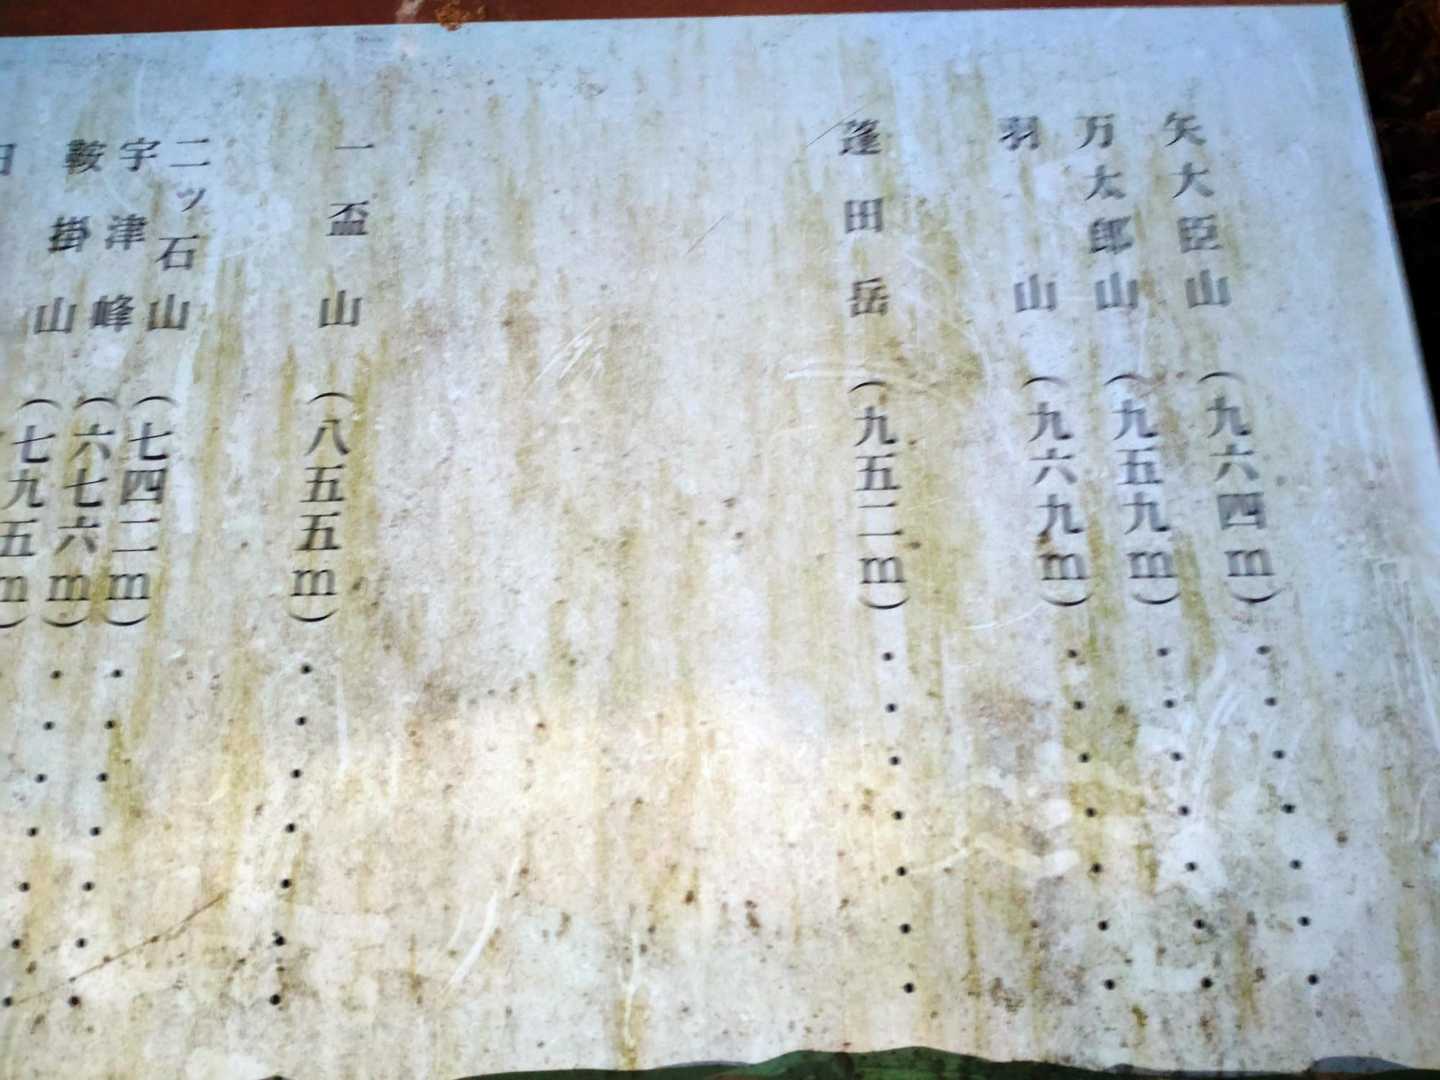 矢大臣山（九六四m）
万太郎山（九五九m）
羽山（九六九m）
蓬田岳（九五二m）
一盃山（八五五m）
二ッ石山（七四二m）
宇津峰（六七六m）
鞍掛山（七九五m）